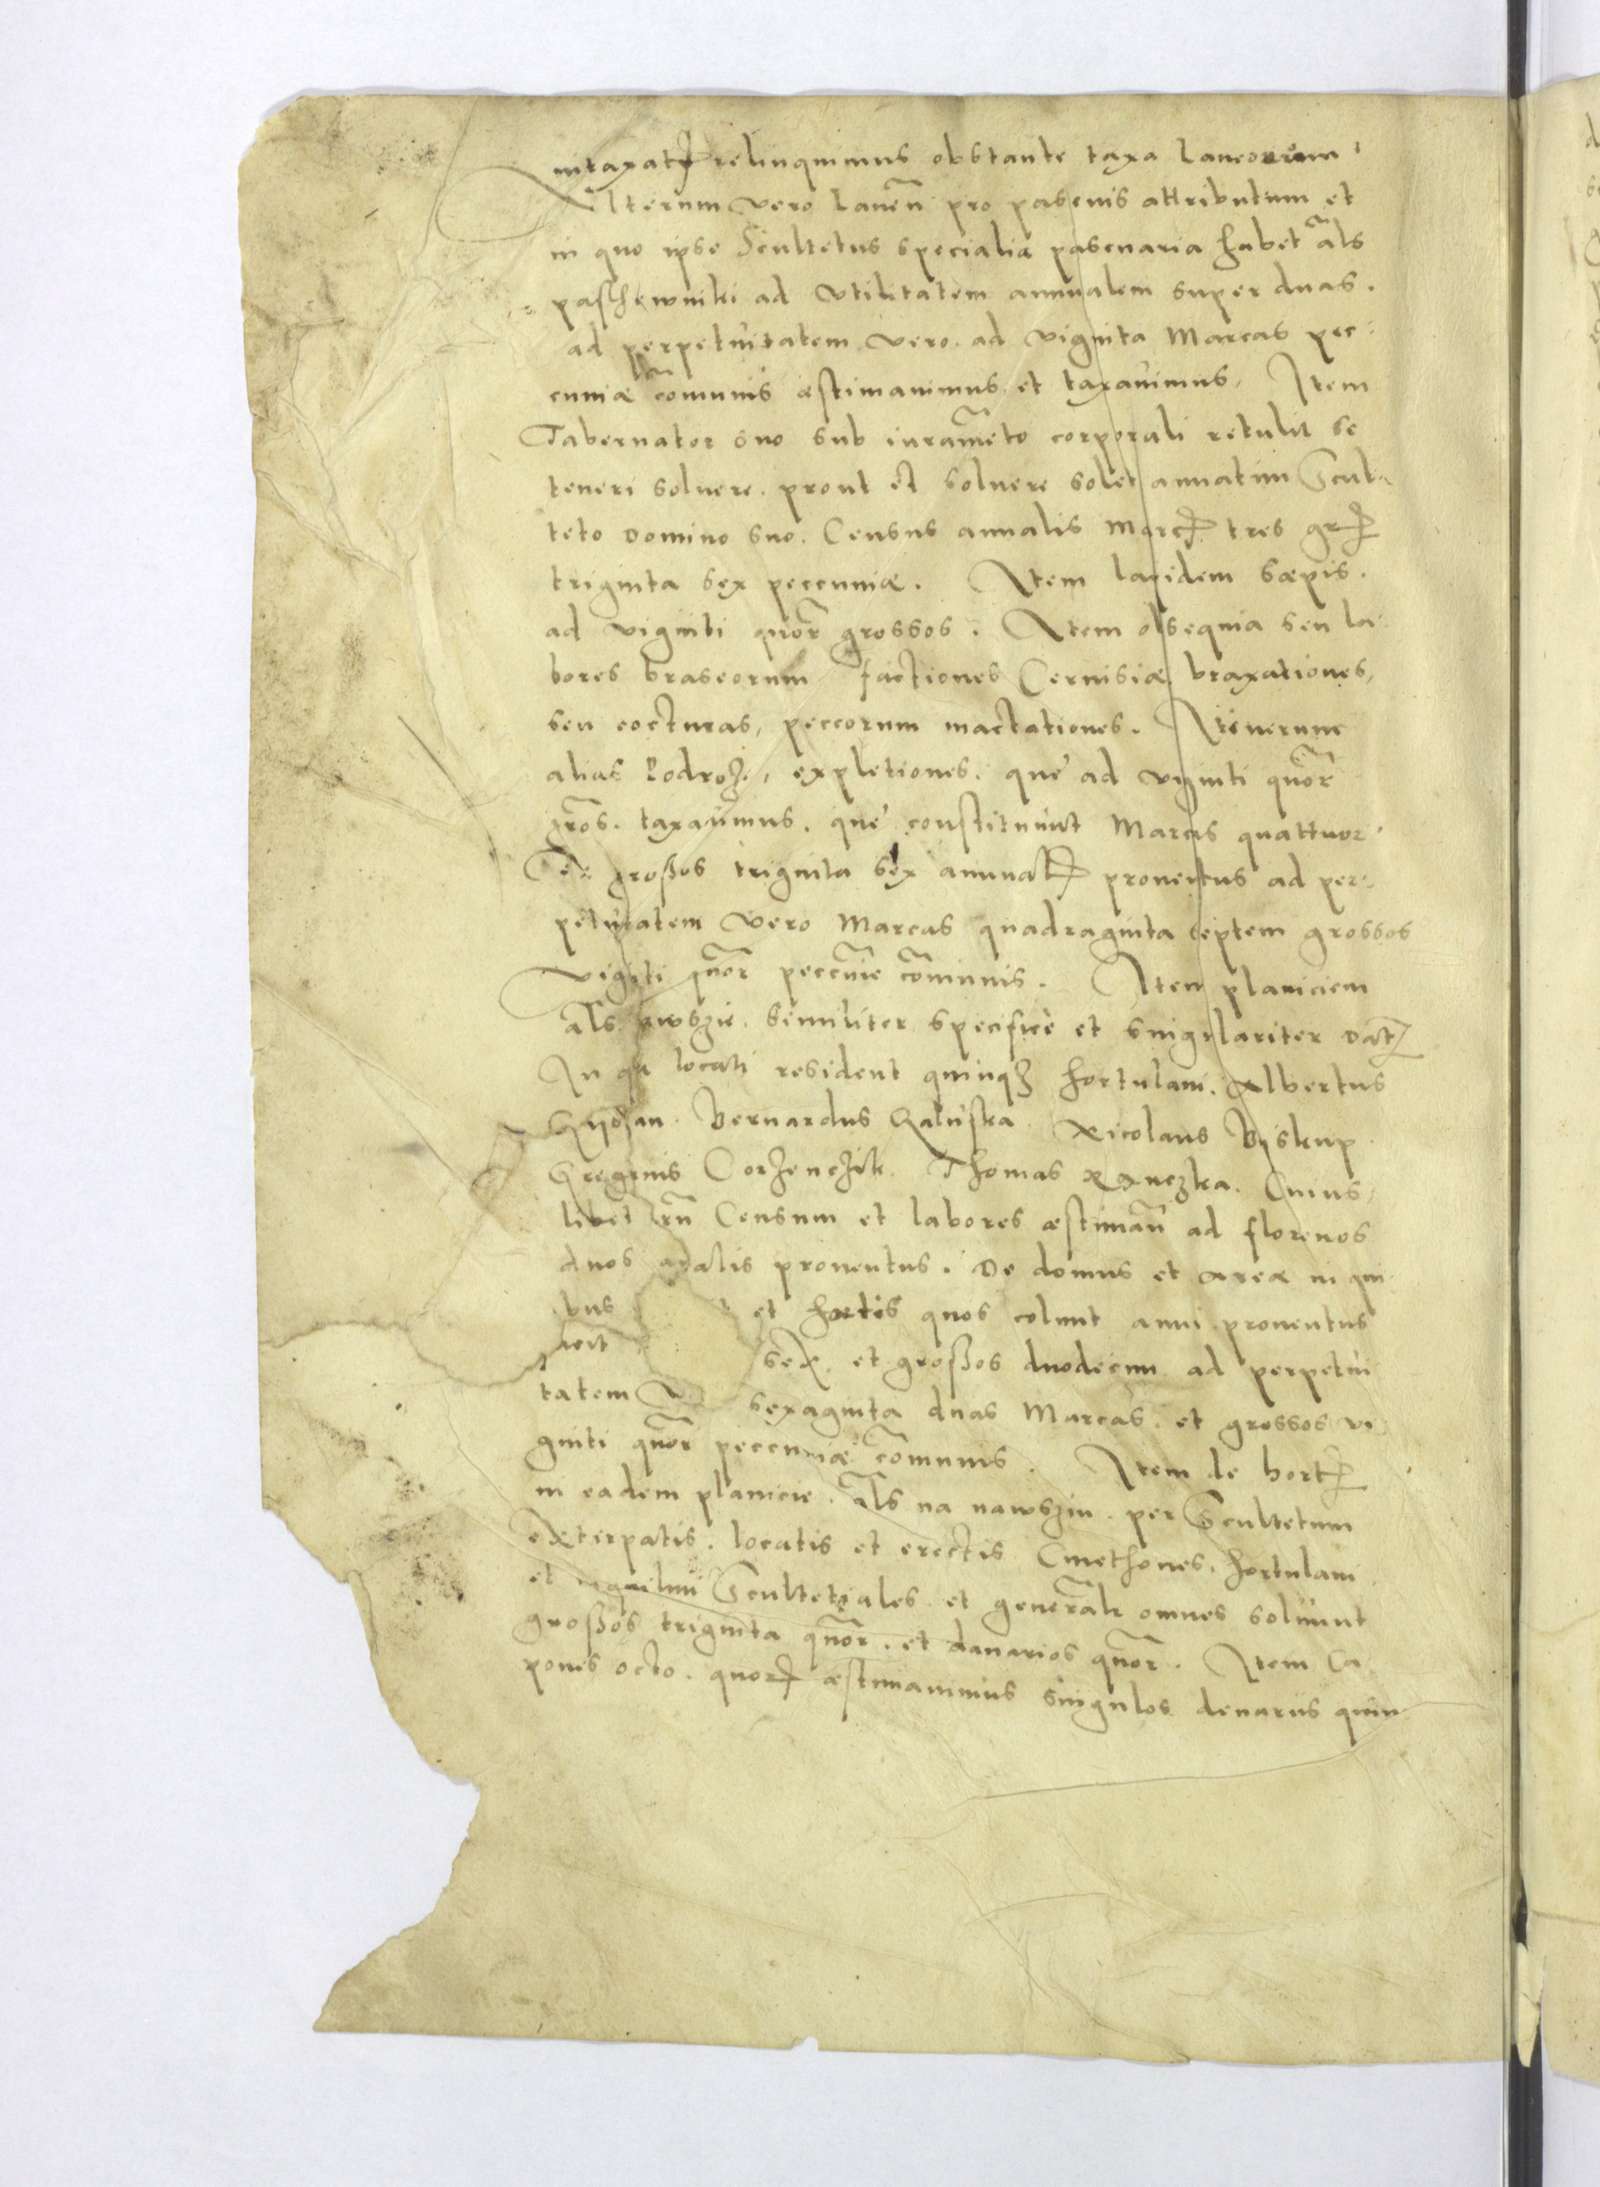 intaxatum relinquimus obstante taxa Laneorum
Alterum vero Laneum pro pascuis attributum et
in quo ipse Scultetus specialia pascuaria habet als
pasthewniki ad vtilitatem annualem super duas.
ad perpetuitatem vero. ad viginta Marcas pec
cuniæ comunis æstimauimus et taxauimus, Item
Tabernator suo sub iurameto corporali retulit se
teneri soluere. prout et soluere solet annatim Scul
teto Domino suo. Census annalis Marc. tres gr.
triginta sex peccuniæ. Item lapidem sæpis.
ad viginti quor grossos. Item obsequia seu la
bores braseorum factiones Ceruisiæ braxationes,
seu cocturas, peccorum mactationes. Itinerum
alias Podroz., expletiones. que ad viginti quor
gros. taxauimus. que constituunt Marcas quattuor
et grossos triginta sex annual. prouentus ad per
petuitatem vero Marcas quadraginta septem grossos
vigiti quor peccunie comunis. Item planiciem
als nawszie. similiter specifice et singulariter dat.
In qua locati resident quinq3 hortulani. Albertus
Bernardus Kaluska Nicolaus Biskup
Gregorius Corzenczik Thomas Cuius
libet eru Censum et labores æstimau ad florenos
duos analis prouentus. De domus et areæ in qui
bus et hortis quos colunt anni prouentus
sex. et grossos duodecim ad perpetui
tatem V sexaginta duas Marcas. et grossos vi
ginti quor peccuniæ comunis. Item de hort.
in eadem planicie. als na nawsziu. per Scultetum
exterpatis. locatis et erectis Cmethones. hortulani
et inquilini Scultetiales et generalr omnes soluunt
grossos triginta quor. et danarios quor. Item Ca
ponis octo. quor. æstimauimus singulos denariis quin